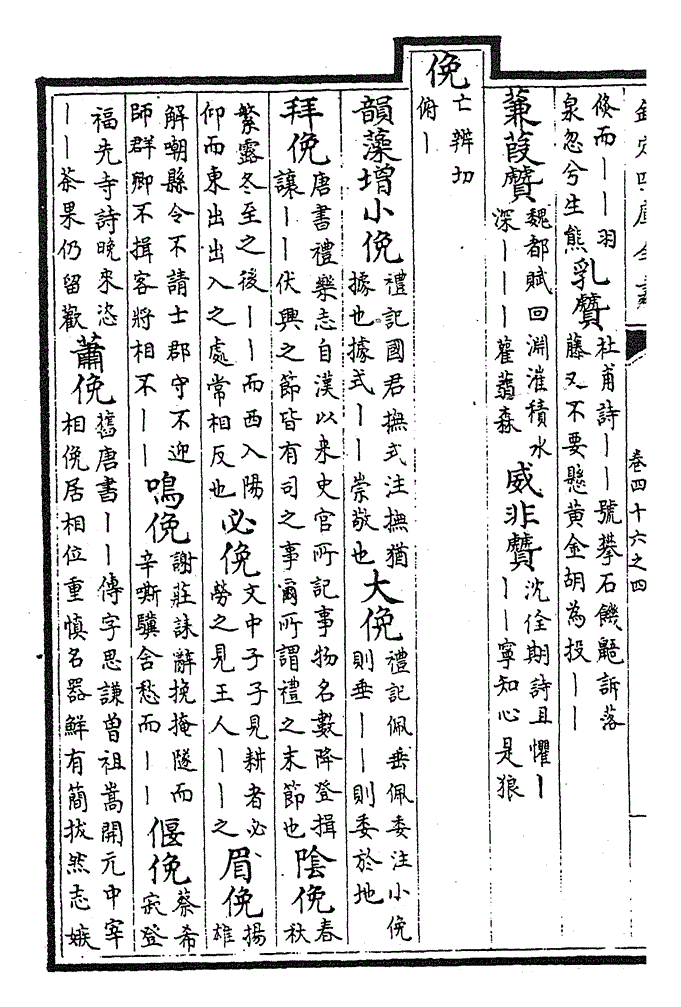 欽定四庫全書
卷四十六之四
倏而丨丨羽
泉忽兮生熊
乳贙
杜甫詩丨丨號攀石饑鼯訴落
藤又不要懸黃金胡為投丨丨
蒹葭贙
魏都賦回淵漼積水
深丨丨丨雚蒻森
威非贙
沈佺期詩且懼丨
丨丨寧知心是狼
俛
亡辨切
俯丨
韻藻增小俛
禮記國君撫式注撫猶
據也據式丨丨崇敬也
大俛
禮記佩垂佩委注小俛
則垂丨丨則委於地
拜俛
唐書禮樂志自漢以來史官所記事物名數降登揖
讓丨丨伏興之節皆有司之事爾所謂禮之末節也
陰俛
春
秋
繁露冬至之後丨丨而西入陽
仰而東出出入之處常相反也
必俛
文中子子見耕者必
勞之見王人丨丨之
眉俛
揚
雄
解嘲縣令不請士郡守不迎
師群卿不揖客將相不丨丨
鳴俛
謝莊誄辭挽掩隧而
辛嘶驥含愁而丨丨
偃俛
蔡希
寂登
福先寺詩晚來恣
丨丨茶果仍留歡
蕭俛
舊唐書丨丨傳字思謙曾祖嵩開元中宰
相俛居相位重慎名器鮮有簡拔然志嫉